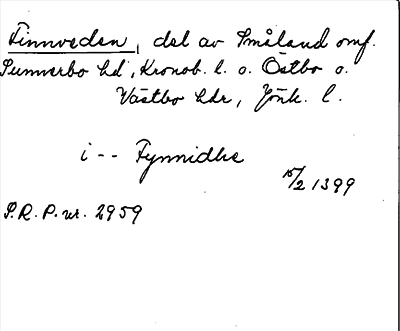 Finnveden, del av Småland omf.
Sunnerbo hd, Kronob. l. o. Östbo o.
Västbo hdr, Jönk. l.
i -- Fynnidhe
15/2 1399
S.R.P. nr. 2959